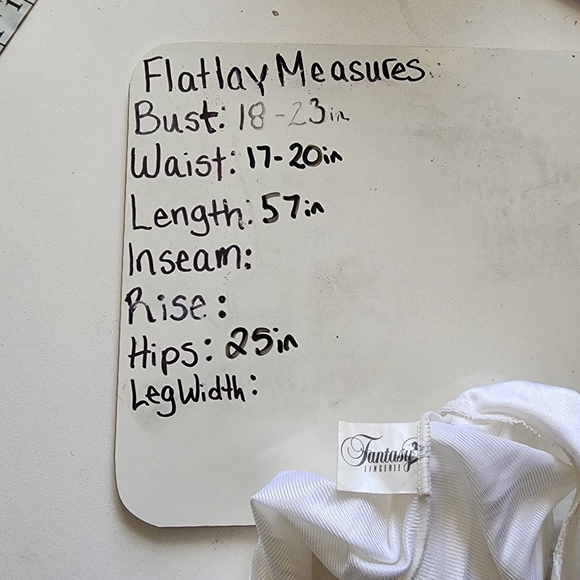 Flatlay Measures
Bust: 18-23in
Waist: 17-20in
Length: 57in
Inseam:
Rise:
Hips: 25in
Leg Width:
Fantasy
LINGERIE